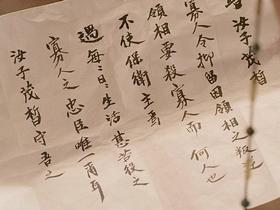 汝子茂皙
寡人今抑留因領相之叛逆
領相要殺寡人而 何人也
不使保衛主焉
過每日生活甚苦役之
寡人之忠臣唯一耳
汝子茂皙守吾之